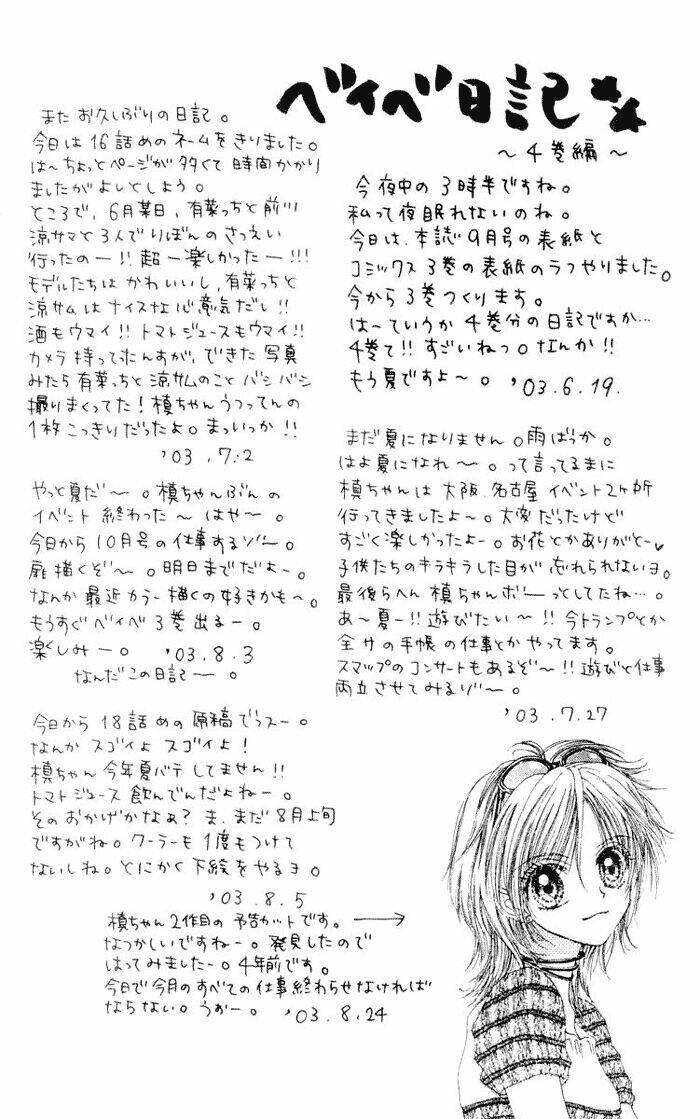 ベイベ日記
〜4巻編〜
今夜中の3時半ですね。
私って夜眠れないのね。
今日は、本誌9月号の表紙と
コミックス3巻の表紙のラフやりました。
今から3巻つくります。
は〜ていうか4巻分の日記ですか…
4巻て!!すごいねっ。なんか!!
もう夏ですよ〜。'03.6.19.
まだ夏になりません。雨ばっか。
はよ夏になれ〜。って言ってるまに
槙ちゃんは大阪、名古屋イベント2ヶ所
行ってきましたよ〜。大変だったけど
すごく楽しかったよー。お花とかありがとー♥
子供たちのキラキラした目が忘れられないヨ。
最後らへん槙ちゃんボーっとしてたね…。
あ〜夏ー!!遊びたい〜!!今トランプとか
全サの手帳の仕事とかやってます。
スマップのコンサートもあるぞ〜!!遊びと仕事
両立させてみるゾ〜。
'03.7.27
またお久しぶりの日記。
今日は16話めのネームをきりました。
は〜ちょっとページが多くて時間かかり
ましたがよいとしよう。
ところで、6月某日、有菜っちと前川
涼サマと3人でりぼんのさつえい
行ったのー!!超ー楽しかったー!!!
モデルたちはかわいいし、有菜っちと
涼サムはナイスな心意気だし!!
酒もウマイ!!トマトジュースもウマイ!!
カメラ持って来んすが、できた写真
みたら有菜っちと涼サムのことバシバシ
撮りまくってた!槙ちゃんうつってんの
1枚こっきりだったよ。まっいっか!!
'03.7.2
やっと夏だ〜。槙ちゃんぶんの
イベント終わった〜はや〜。
今日から10月号の仕事するゾ〜。
扉描くぞ〜。明日までだよー。
なんか最近カラー描くの好きかも〜。
もうすぐベイベ3巻出るー。
楽しみー。'03.8.3
なんだこの日記ー。
今日から18話めの原稿でっスー。
なんかスゴイよスゴイよ!
槙ちゃん今年夏バテしてません!!
トマトジュース飲んでんだよねー。
そのおかげかなぁ?ま、まだ8月上旬
ですがね。クーラーも1度もつけて
ないしね。とにかく下絵をやるヨ。
'03.8.5
槙ちゃん2作目の予告カットです。→
なつかしいですねー。発見したので
はってみましたー。4年前です。
今日で今月のすべての仕事終わらせなければ
ならない。うぉー。'03.8.24